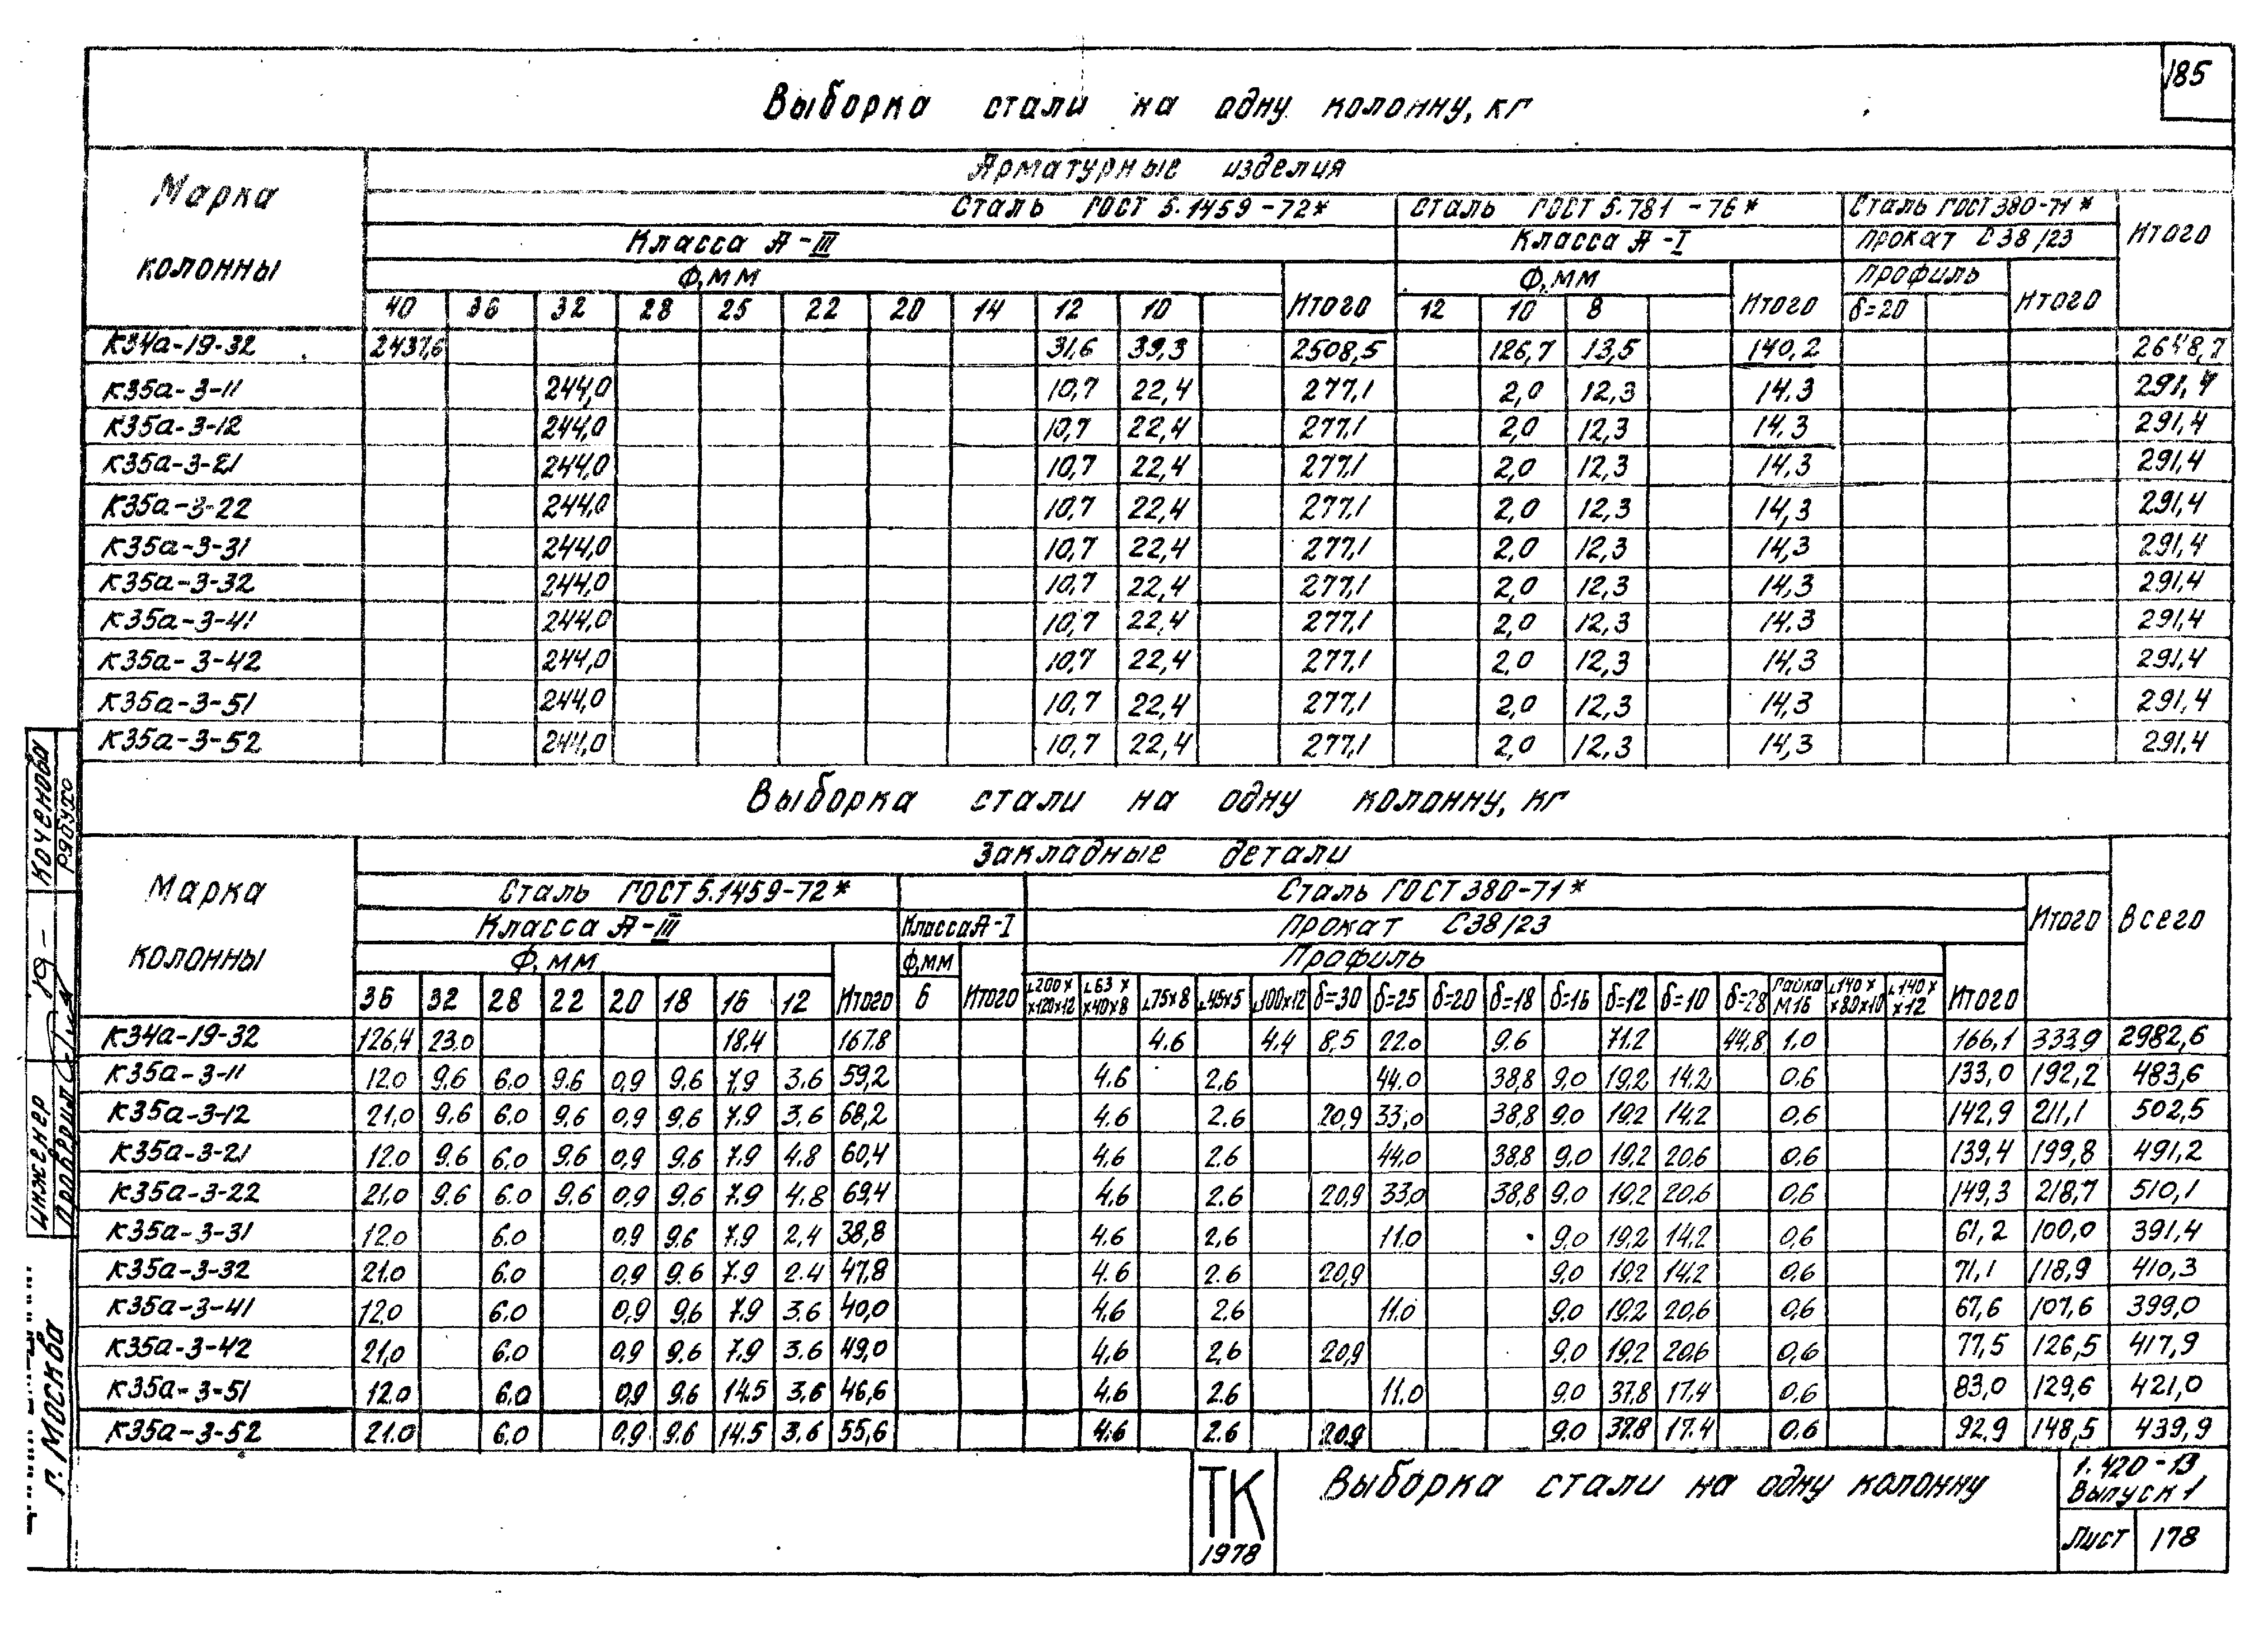 185
Выборка стали на одну колонну, кг
Марка колонны
Арматурные изделия
Сталь ГОСТ 5.1459-72* Сталь ГОСТ 5.781-76* Сталь ГОСТ 380-71* Итого
Класса А-III Класса А-I Прокат С38/23
Ф, мм Итого Ф, мм Итого Профиль Итого
40 36 32 28 25 22 20 14 12 10 12 10 8 δ=20
К34а-19-32 2437,6 31,6 39,3 2508,5 126,7 13,5 140,2 2648,7
К35а-3-11 244,0 10,7 22,4 277,1 2,0 12,3 14,3 291,4
К35а-3-12 244,0 10,7 22,4 277,1 2,0 12,3 14,3 291,4
К35а-3-21 244,0 10,7 22,4 277,1 2,0 12,3 14,3 291,4
К35а-3-22 244,0 10,7 22,4 277,1 2,0 12,3 14,3 291,4
К35а-3-31 244,0 10,7 22,4 277,1 2,0 12,3 14,3 291,4
К35а-3-32 244,0 10,7 22,4 277,1 2,0 12,3 14,3 291,4
К35а-3-41 244,0 10,7 22,4 277,1 2,0 12,3 14,3 291,4
К35а-3-42 244,0 10,7 22,4 277,1 2,0 12,3 14,3 291,4
К35а-3-51 244,0 10,7 22,4 277,1 2,0 12,3 14,3 291,4
К35а-3-52 244,0 10,7 22,4 277,1 2,0 12,3 14,3 291,4
Выборка стали на одну колонну, кг
Марка колонны
Закладные детали
Сталь ГОСТ 5.1459-72* Сталь ГОСТ 380-71* Итого Всего
Класса А-III Класса А-I Прокат С38/23
Ф, мм Ф, мм Профиль
36 32 28 22 20 18 16 12 Итого 6 Итого ∟200х х120х12 ∟63х х40х8 ∟75х8 ∟45х5 ∟100х12 δ=30 δ=25 δ=20 δ=18 δ=16 δ=12 δ=10 δ=28 Гайка М16 ∟140х х80х10 ∟140х х12 Итого
К34а-19-32 126,4 23.0 18,4 167.8 4.6 4.4 8,5 22.0 9.6 71.2 44.8 1.0 166,1 333,9 2982,6
К35а-3-11 12.0 9.6 6.0 9.6 0,9 9.6 7.9 3.6 59,2 4.6 2.6 44.0 38,8 9.0 19.2 14.2 0.6 133,0 192,2 483,6
К35а-3-12 21,0 9.6 6.0 9.6 0,9 9.6 7.9 3,6 68,2 4.6 2.6 20,9 33,0 38,8 9.0 19.2 14.2 0,6 142,9 211,1 502,5
К35а-3-21 12.0 9.6 6.0 9.6 0,9 9.6 7.9 4.8 60,4 4.6 2.6 44.0 38.8 9.0 19.2 20.6 0.6 139,4 199,8 491,2
К35а-3-22 21.0 9.6 6.0 9.6 0,9 9.6 7.9 4.8 69,4 4.6 2.6 20,9 33,0 38,8 9.0 19.2 20,6 0,6 149,3 218,7 510,1
К35а-3-31 12.0 6.0 0.9 9.6 7.9 2,4 38,8 4.6 2,6 11.0 9,0 19.2 14.2 0,6 61,2 100,0 391,4
К35а-3-32 21.0 6.0 0,9 9.6 7.9 2.4 47,8 4.6 2.6 20,9 9.0 19.2 14.2 0,6 71,1 118,9 410,3
К35а-3-41 12.0 6.0 0,9 9,6 7.9 3.6 40,0 4.6 2.6 11.0 9.0 19.2 20,6 0,6 67,6 107,6 399,0
К35а-3-42 21,0 6.0 0,9 9.6 7.9 3.6 49,0 4,6 2,6 20,9 9.0 19.2 20.6 0,6 77,5 126,5 417,9
К35а-3-51 12.0 6.0 0,9 9.6 14.5 3,6 46,6 4.6 2.6 11.0 9.0 37.8 17.4 0.6 83,0 129,6 421,0
К35а-3-52 21.0 6.0 0,9 9.6 14.5 3,6 55,6 4.6 2.6 20.9 9.0 37.8 17.4 0.6 92,9 148,5 439,9
Коченова
Рябухо
Инженер
Проверил
г. Москва
ТК
1978
Выборка стали на одну колонну
1.420-13
Выпуск 1
Лист 178